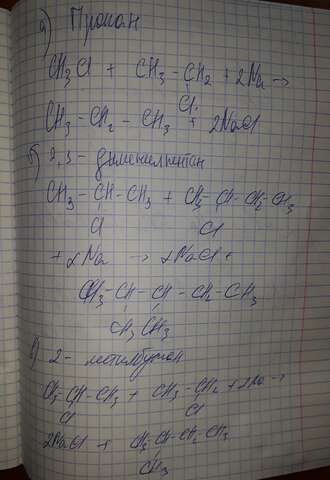 а) Пропан
CH3Cl + CH3 - CH2 + 2Na →
Cl
CH3 - CH2 - CH3 + 2NaCl
б) 2,3 - диметилпентан
CH3 - CH - CH3 + CH3 - CH - CH2 - CH3
Cl Cl
+ 2Na → 2NaCl +
CH3 - CH - CH - CH2 - CH3
CH3 CH3
в) 2 - метилбутан
CH3 - CH - CH3 + CH3 - CH2 + 2Na →
Cl Cl
2NaCl + CH3 - CH - CH2 - CH3
CH3